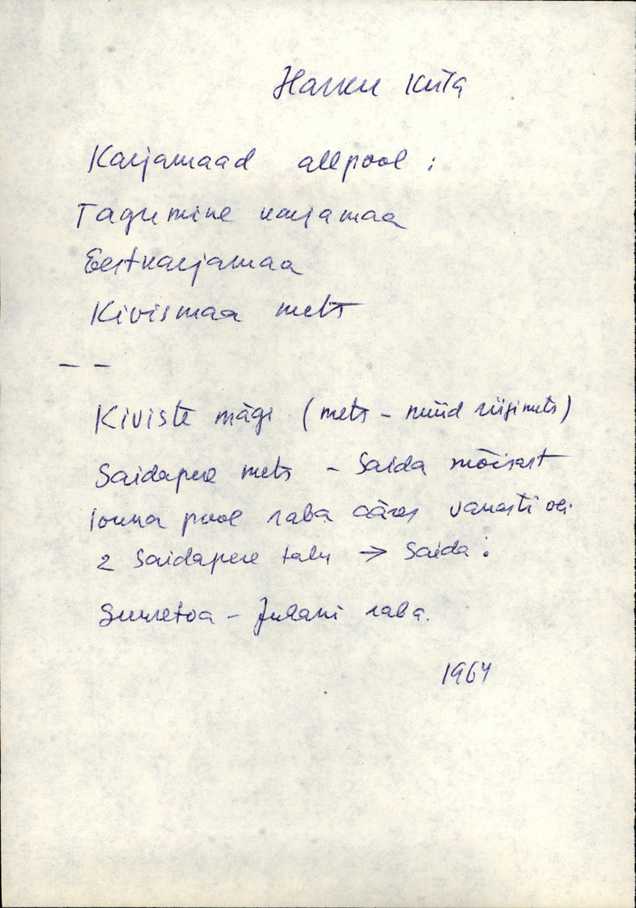 Harku Kiia
Karjamaad allpool :
Tagumine karjamaa
Eestkarjamaa
Kivismaa mets
— —
Kiviste mägi (mets – nüüd riigimets)
Saidapere mets – Saida mõisast
lõuna pool raba ääres vanasti oli
2 Saidapere talu → Saida :
Suuretoa – Juhani raba.
1964